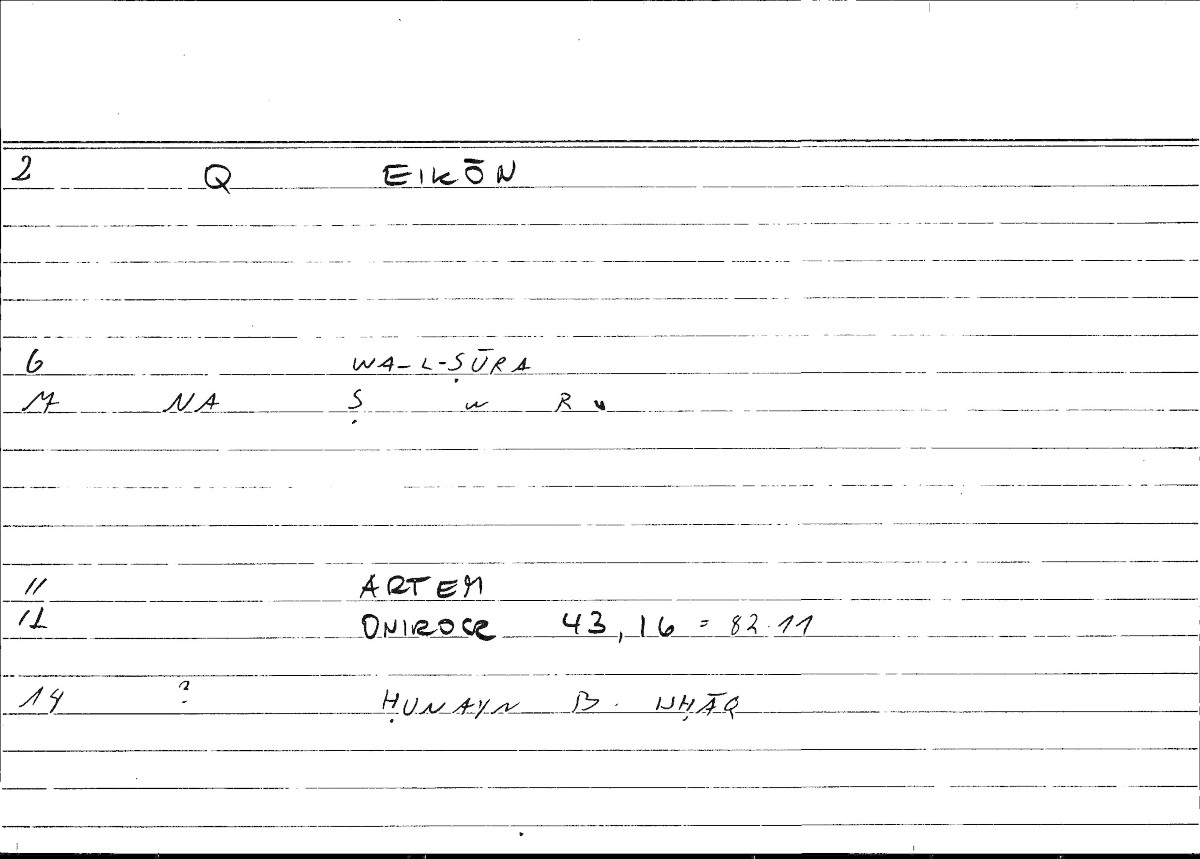 2 Q EIKŌN
6 WA-L-ṢŪRA
7 NA Ṣ W R
11 ARTEM
12 ONIROCR 43,16 = 82.11
14 ? ḤUNAYN B. ISḤĀQ